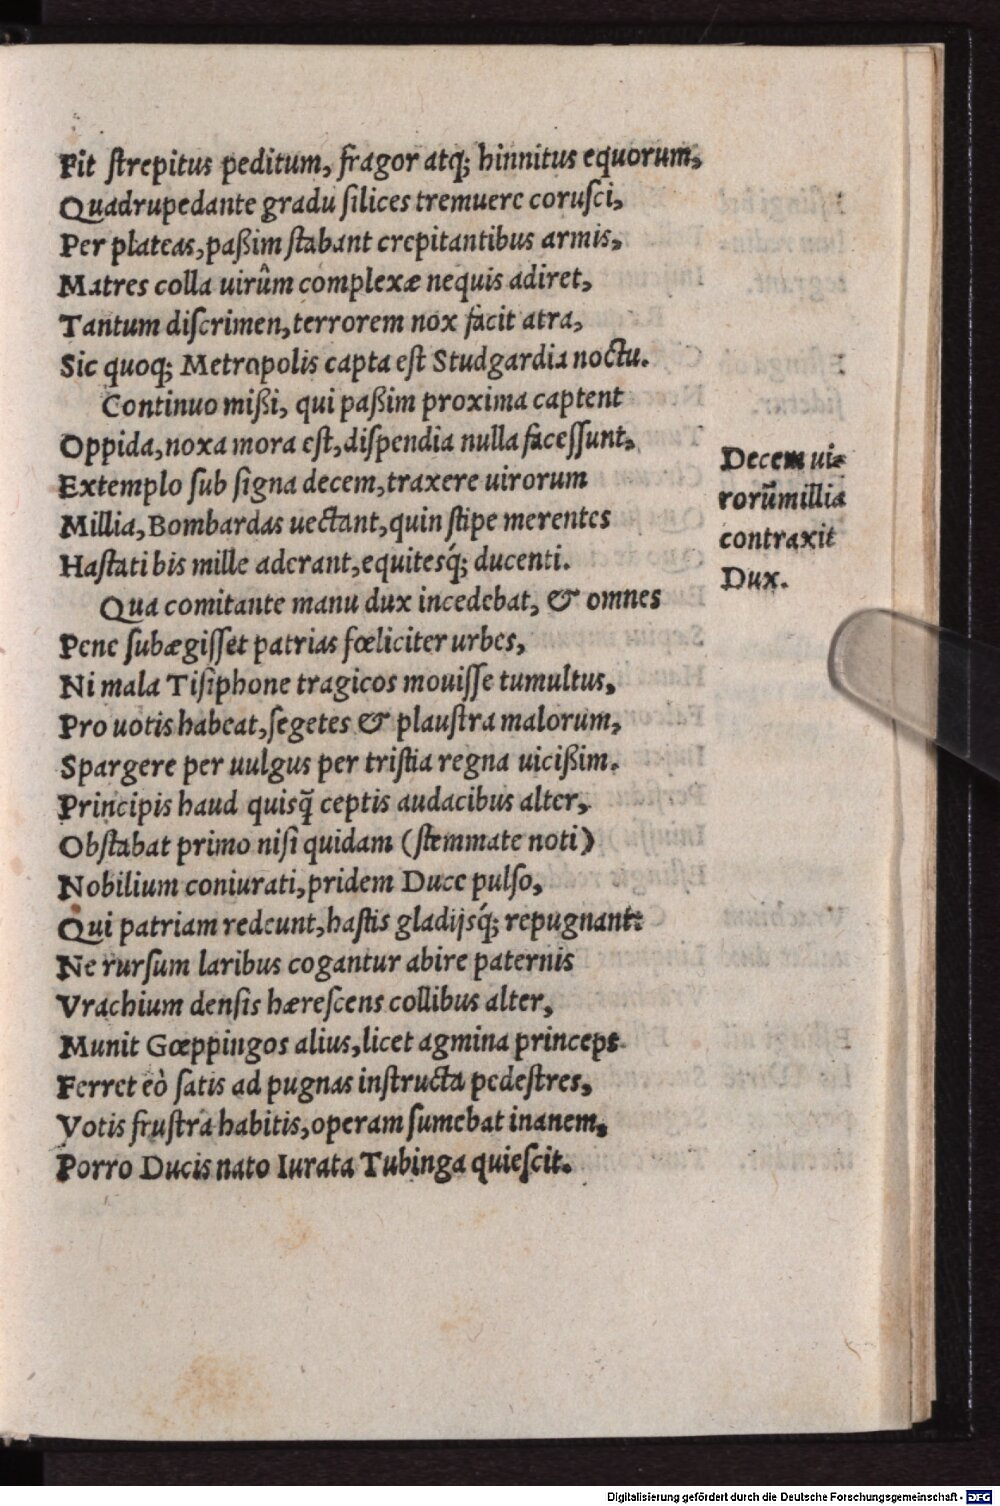 Fit strepitus peditum, fragor atq; hinnitus equorum,
Quadrupedante gradu silices tremuere corusci,
Per plateas, paßim stabant crepitantibus armis,
Matres colla uirûm complexæ nequis adiret,
Tantum discrimen, terrorem nox facit atra,
Sic quoq; Metropolis capta est Studgardia noctu.
Continuo mißi, qui paßim proxima captent
Oppida, noxa mora est, dispendia nulla facessunt,
Extemplo sub signa decem, traxere uirorum
Millia, Bombardas uectant, quin stipe merentes
Hastati bis mille aderant, equitesq́; ducenti.
Qua comitante manu dux incedebat, & omnes
Pene subægisset patrias fœliciter urbes,
Ni mala Tisiphone tragicos mouisse tumultus,
Pro uotis habeat, segetes & plaustra malorum,
Spargere per uulgus per tristia regna uicißim.
Principis haud quisq̃ ceptis audacibus alter,
Obstabat primo nisi quidam (stemmate noti)
Nobilium coniurati, pridem Duce pulso,
Qui patriam redeunt, hastis gladijsq́; repugnant:
Ne rursum laribus cogantur abire paternis
Vrachium densis hærescens collibus alter,
Munit Gœppingos alius, licet agmina princeps
Ferret eò satis ad pugnas instructa pedestres,
Votis frustra habitis, operam sumebat inanem,
Porro Ducis nato Iurata Tubinga quiescit.
Decem ui-
rorũ millia
contraxit
Dux.
Digitalisierung gefördert durch die Deutsche Forschungsgemeinschaft - DFG